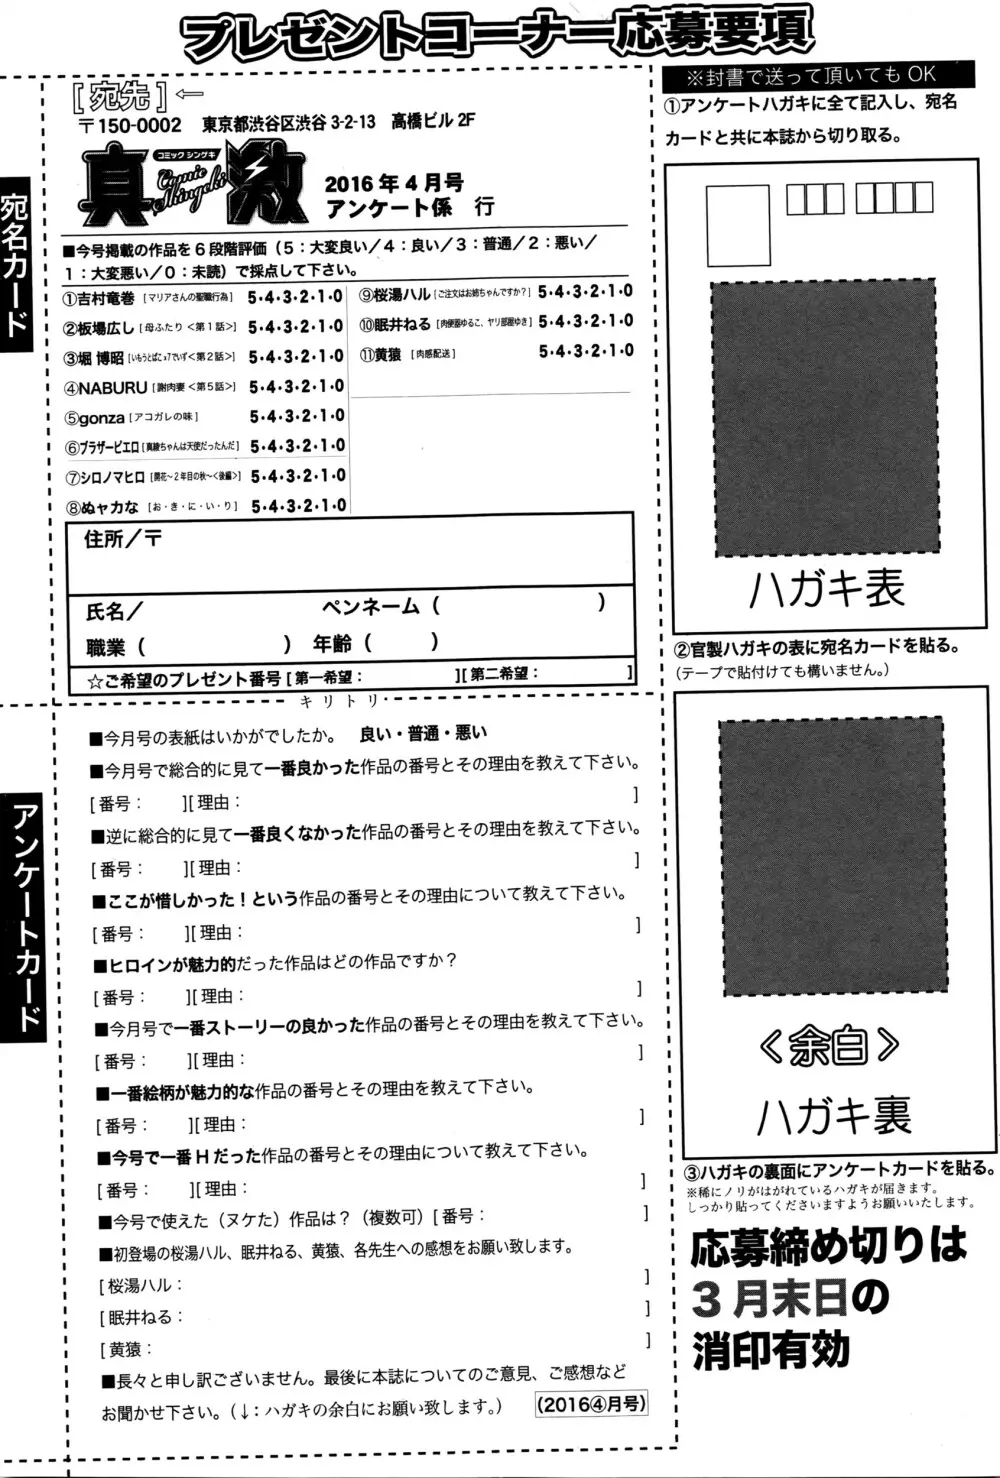 プレゼントコーナー応募要項
宛名カード
[宛先]←
〒150-0002　東京都渋谷区渋谷 3-2-13　高橋ビル 2F
真激
コミック シンゲキ
Comic Shingeki
2016年4月号
アンケート係　行
■今号掲載の作品を6段階評価（5：大変良い／4：良い／3：普通／2：悪い／
1：大変悪い／0：未読）で採点して下さい。
①吉村竜巻［マリアさんの聖職行為］ 5・4・3・2・1・0
②板場広し［母ふたり＜第1話＞］ 5・4・3・2・1・0
③堀 博昭［いもうとぱこx7でいず＜第2話＞］ 5・4・3・2・1・0
④NABURU［謝肉妻＜第5話＞］ 5・4・3・2・1・0
⑤gonza［アコガレの味］ 5・4・3・2・1・0
⑥ブラザーピエロ［真綾ちゃんは天使だったんだ］ 5・4・3・2・1・0
⑦シロノマヒロ［開花〜2年目の秋〜＜後編＞］ 5・4・3・2・1・0
⑧ぬャカな［お・き・に・い・り］ 5・4・3・2・1・0
⑨桜湯ハル［ご注文はお姉ちゃんですか？］ 5・4・3・2・1・0
⑩眠井ねる［肉便器ゆるこ、ヤリ部屋ゆき］ 5・4・3・2・1・0
⑪黄猿［肉感配送］ 5・4・3・2・1・0
住所／〒
氏名／　ペンネーム（　）
職業（　）年齢（　）
☆ご希望のプレゼント番号［第一希望：　］［第二希望：　］
キリトリ
アンケートカード
■今月号の表紙はいかがでしたか。　良い・普通・悪い
■今月号で総合的に見て一番良かった作品の番号とその理由を教えて下さい。
[番号：　][理由：　]
■逆に総合的に見て一番良くなかった作品の番号とその理由を教えて下さい。
[番号：　][理由：　]
■ここが惜しかった！という作品の番号とその理由について教えて下さい。
[番号：　][理由：　]
■ヒロインが魅力的だった作品はどの作品ですか？
[番号：　][理由：　]
■今月号で一番ストーリーの良かった作品の番号とその理由を教えて下さい。
[番号：　][理由：　]
■一番絵柄が魅力的な作品の番号とその理由を教えて下さい。
[番号：　][理由：　]
■今号で一番Hだった作品の番号とその理由について教えて下さい。
[番号：　][理由：　]
■今号で使えた（ヌケた）作品は？（複数可）[番号：　]
■初登場の桜湯ハル、眠井ねる、黄猿、各先生への感想をお願い致します。
[桜湯ハル：　]
[眠井ねる：　]
[黄猿：　]
■長々と申し訳ございません。最後に本誌についてのご意見、ご感想など
お聞かせ下さい。（↓：ハガキの余白にお願い致します。）　（2016④月号）
※封書で送って頂いてもOK
①アンケートハガキに全て記入し、宛名
カードと共に本誌から切り取る。
ハガキ表
②官製ハガキの表に宛名カードを貼る。
（テープで貼付けても構いません。）
＜余白＞
ハガキ裏
③ハガキの裏面にアンケートカードを貼る。
※稀にノリがはがれているハガキが届きます。
しっかり貼ってくださいますようお願いいたします。
応募締め切りは
3月末日の
消印有効